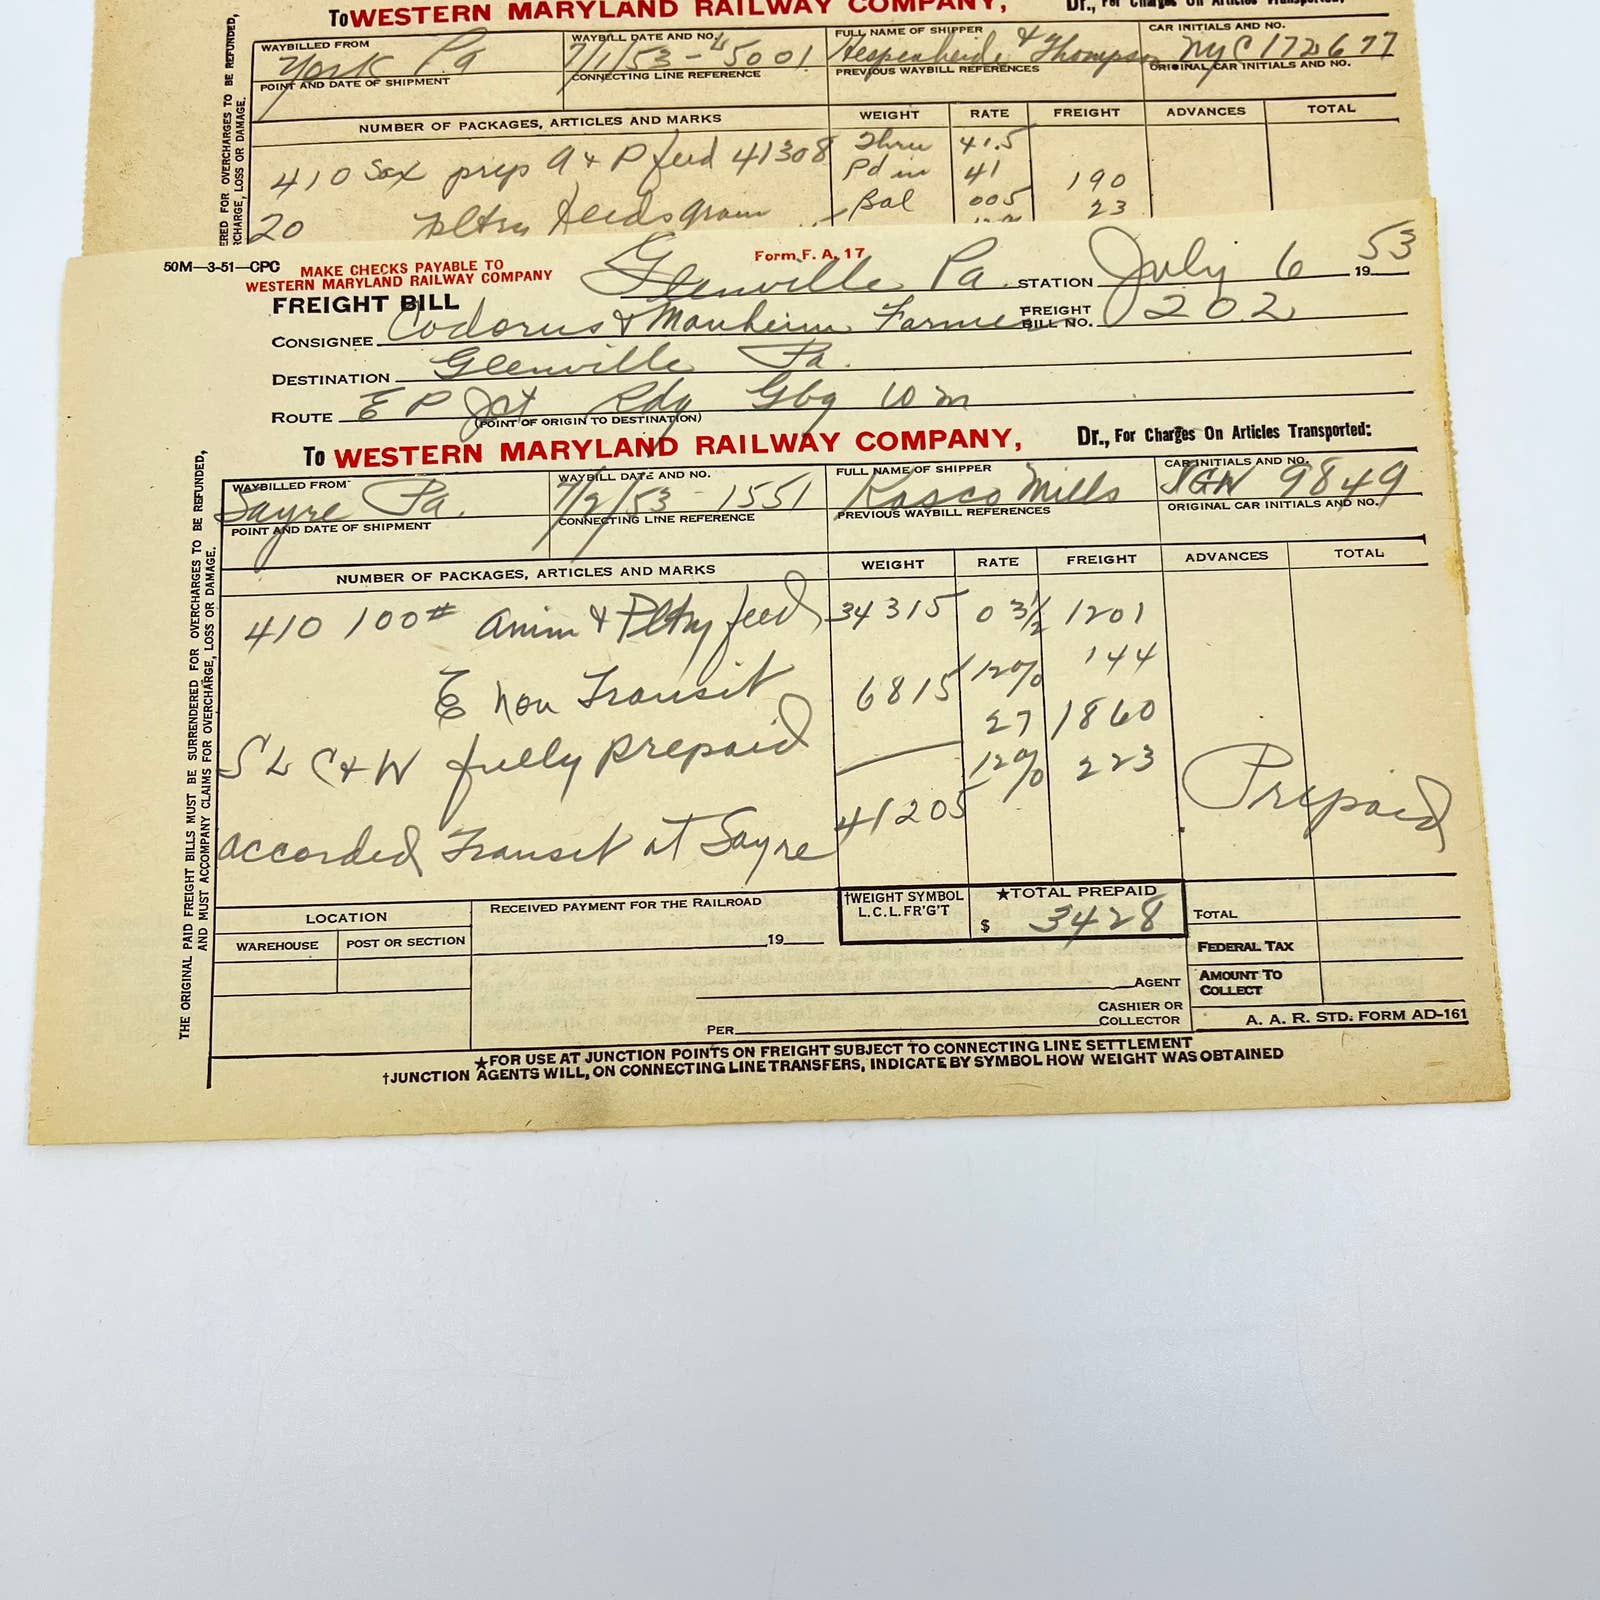 To WESTERN MARYLAND RAILWAY COMPANY, Dr., For Charges On Articles Transported:
WAYBILLED FROM WAYBILL DATE AND NO. FULL NAME OF SHIPPER CAR INITIALS AND NO.
York Pa 7/1/53 - 45001 Hespenheide & Thompson NYC 172677
POINT AND DATE OF SHIPMENT CONNECTING LINE REFERENCE PREVIOUS WAYBILL REFERENCES ORIGINAL CAR INITIALS AND NO.
NUMBER OF PACKAGES, ARTICLES AND MARKS WEIGHT RATE FREIGHT ADVANCES TOTAL
410 Sax prep A & P feed 41308 Thru 41.5
Pd in 41 190
20 pltry feeds gram Bal 005 23
50M-3-51-CPC MAKE CHECKS PAYABLE TO WESTERN MARYLAND RAILWAY COMPANY Form F. A. 17
FREIGHT BILL Glenville Pa. STATION July 6 1953
CONSIGNEE Codorus & Manheim Farmer FREIGHT BILL NO. 202
DESTINATION Glenville Pa.
ROUTE E P Jct Rdg Gbg W m
(POINT OF ORIGIN TO DESTINATION)
To WESTERN MARYLAND RAILWAY COMPANY, Dr., For Charges On Articles Transported:
WAYBILLED FROM WAYBILL DATE AND NO. FULL NAME OF SHIPPER CAR INITIALS AND NO.
Sayre Pa. 7/2/53 - 1551 Kasco Mills 9849
POINT AND DATE OF SHIPMENT CONNECTING LINE REFERENCE PREVIOUS WAYBILL REFERENCES ORIGINAL CAR INITIALS AND NO.
NUMBER OF PACKAGES, ARTICLES AND MARKS WEIGHT RATE FREIGHT ADVANCES TOTAL
410 100# anim & Pltry feed 34315 03½ 1201
12% 144
non Transit 6815 27 1860
S L C & W fully prepaid 12% 223 Prepaid
accorded Transit at Sayre 41205
LOCATION RECEIVED PAYMENT FOR THE RAILROAD †WEIGHT SYMBOL L.C.L. FR'G'T ★TOTAL PREPAID $ 3428 TOTAL
WAREHOUSE POST OR SECTION 19 FEDERAL TAX
AGENT AMOUNT TO COLLECT
PER CASHIER OR COLLECTOR A. A. R. STD. FORM AD-161
★FOR USE AT JUNCTION POINTS ON FREIGHT SUBJECT TO CONNECTING LINE SETTLEMENT
†JUNCTION AGENTS WILL, ON CONNECTING LINE TRANSFERS, INDICATE BY SYMBOL HOW WEIGHT WAS OBTAINED
THE ORIGINAL PAID FREIGHT BILLS MUST BE SURRENDERED FOR OVERCHARGES TO BE REFUNDED,
AND MUST ACCOMPANY CLAIMS FOR OVERCHARGE, LOSS OR DAMAGE.